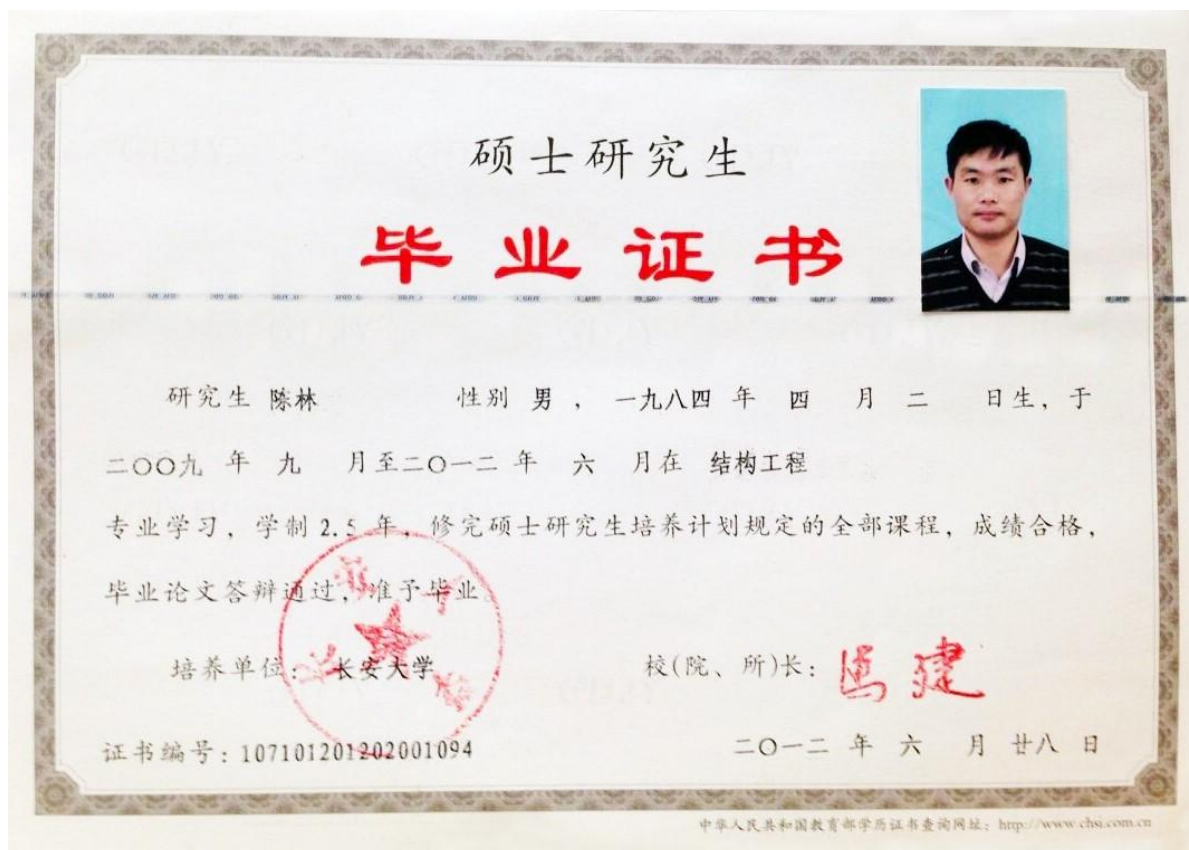 硕士研究生
毕业证书
研究生 陈林 性别 男 ， 一九八四 年 四 月 二 日生，于
二〇〇九 年 九 月至二〇一二 年 六 月在 结构工程
专业学习，学制 2.5 年，修完硕士研究生培养计划规定的全部课程，成绩合格，
毕业论文答辩通过，准予毕业。
培养单位：长安大学 校(院、所)长：
证书编号：107101201202001094 二〇一二 年 六 月 廿八 日
中华人民共和国教育部学历证书查询网址：http://www.chsi.com.cn